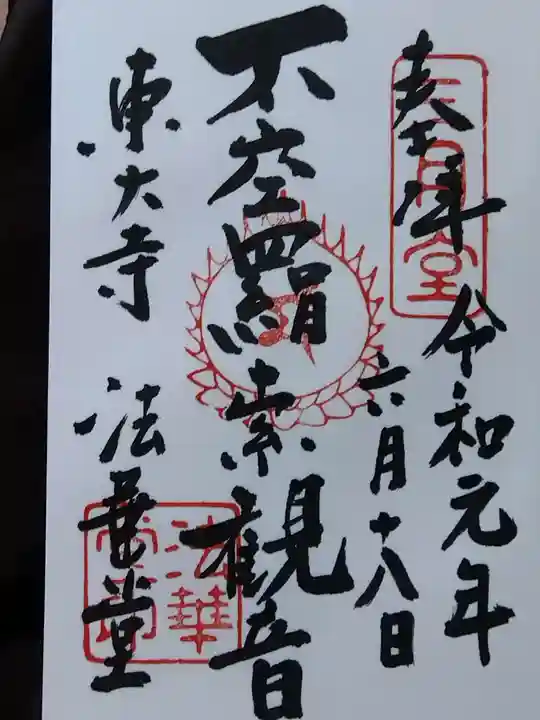 奉拝 令和元年
六月十八日
不空羂索観音
東大寺 法華堂
三月堂
法華堂印